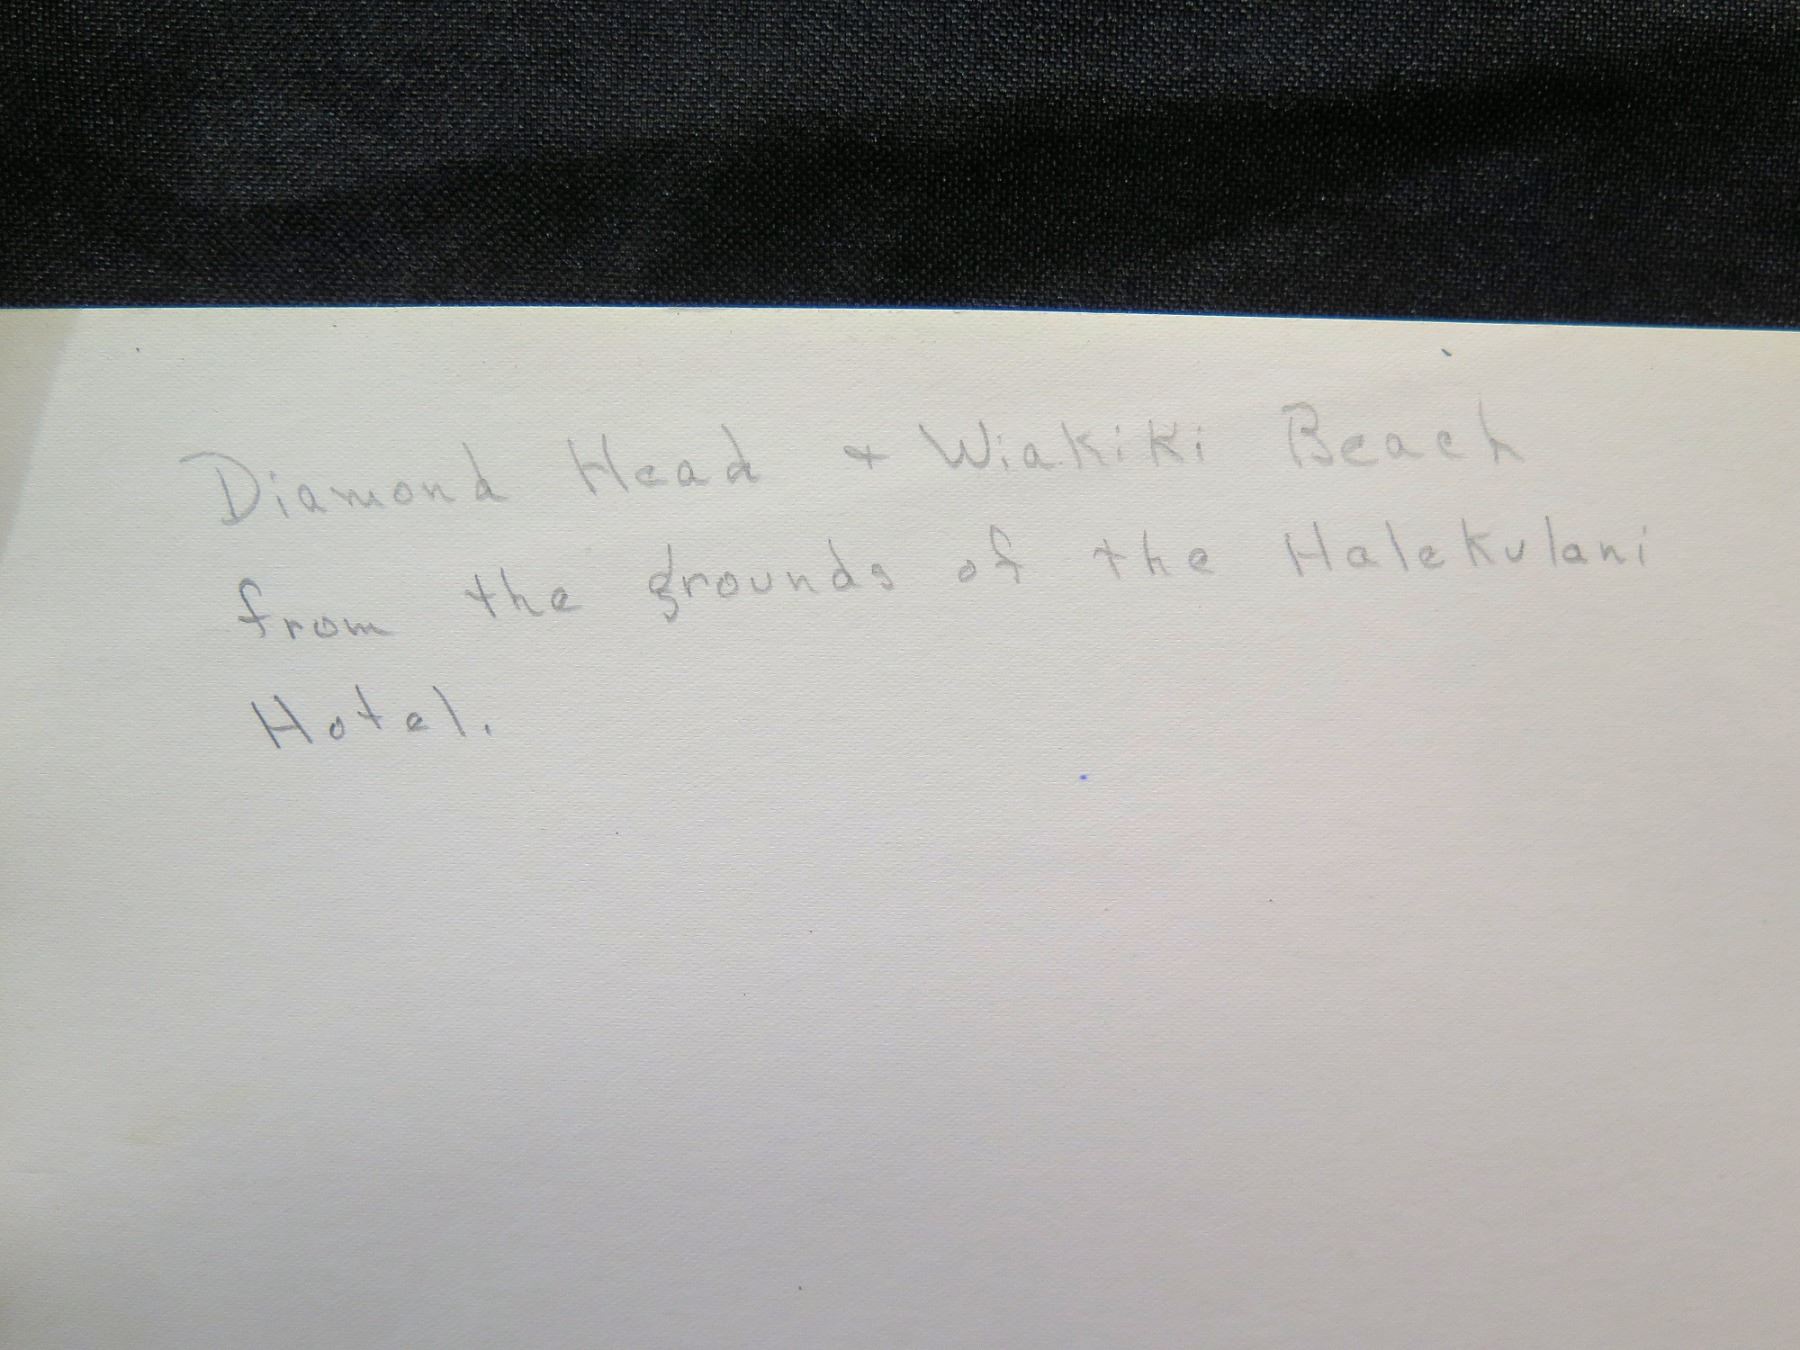 Diamond Head + Wiakiki Beach
from the grounds of the Halekulani
Hotel.